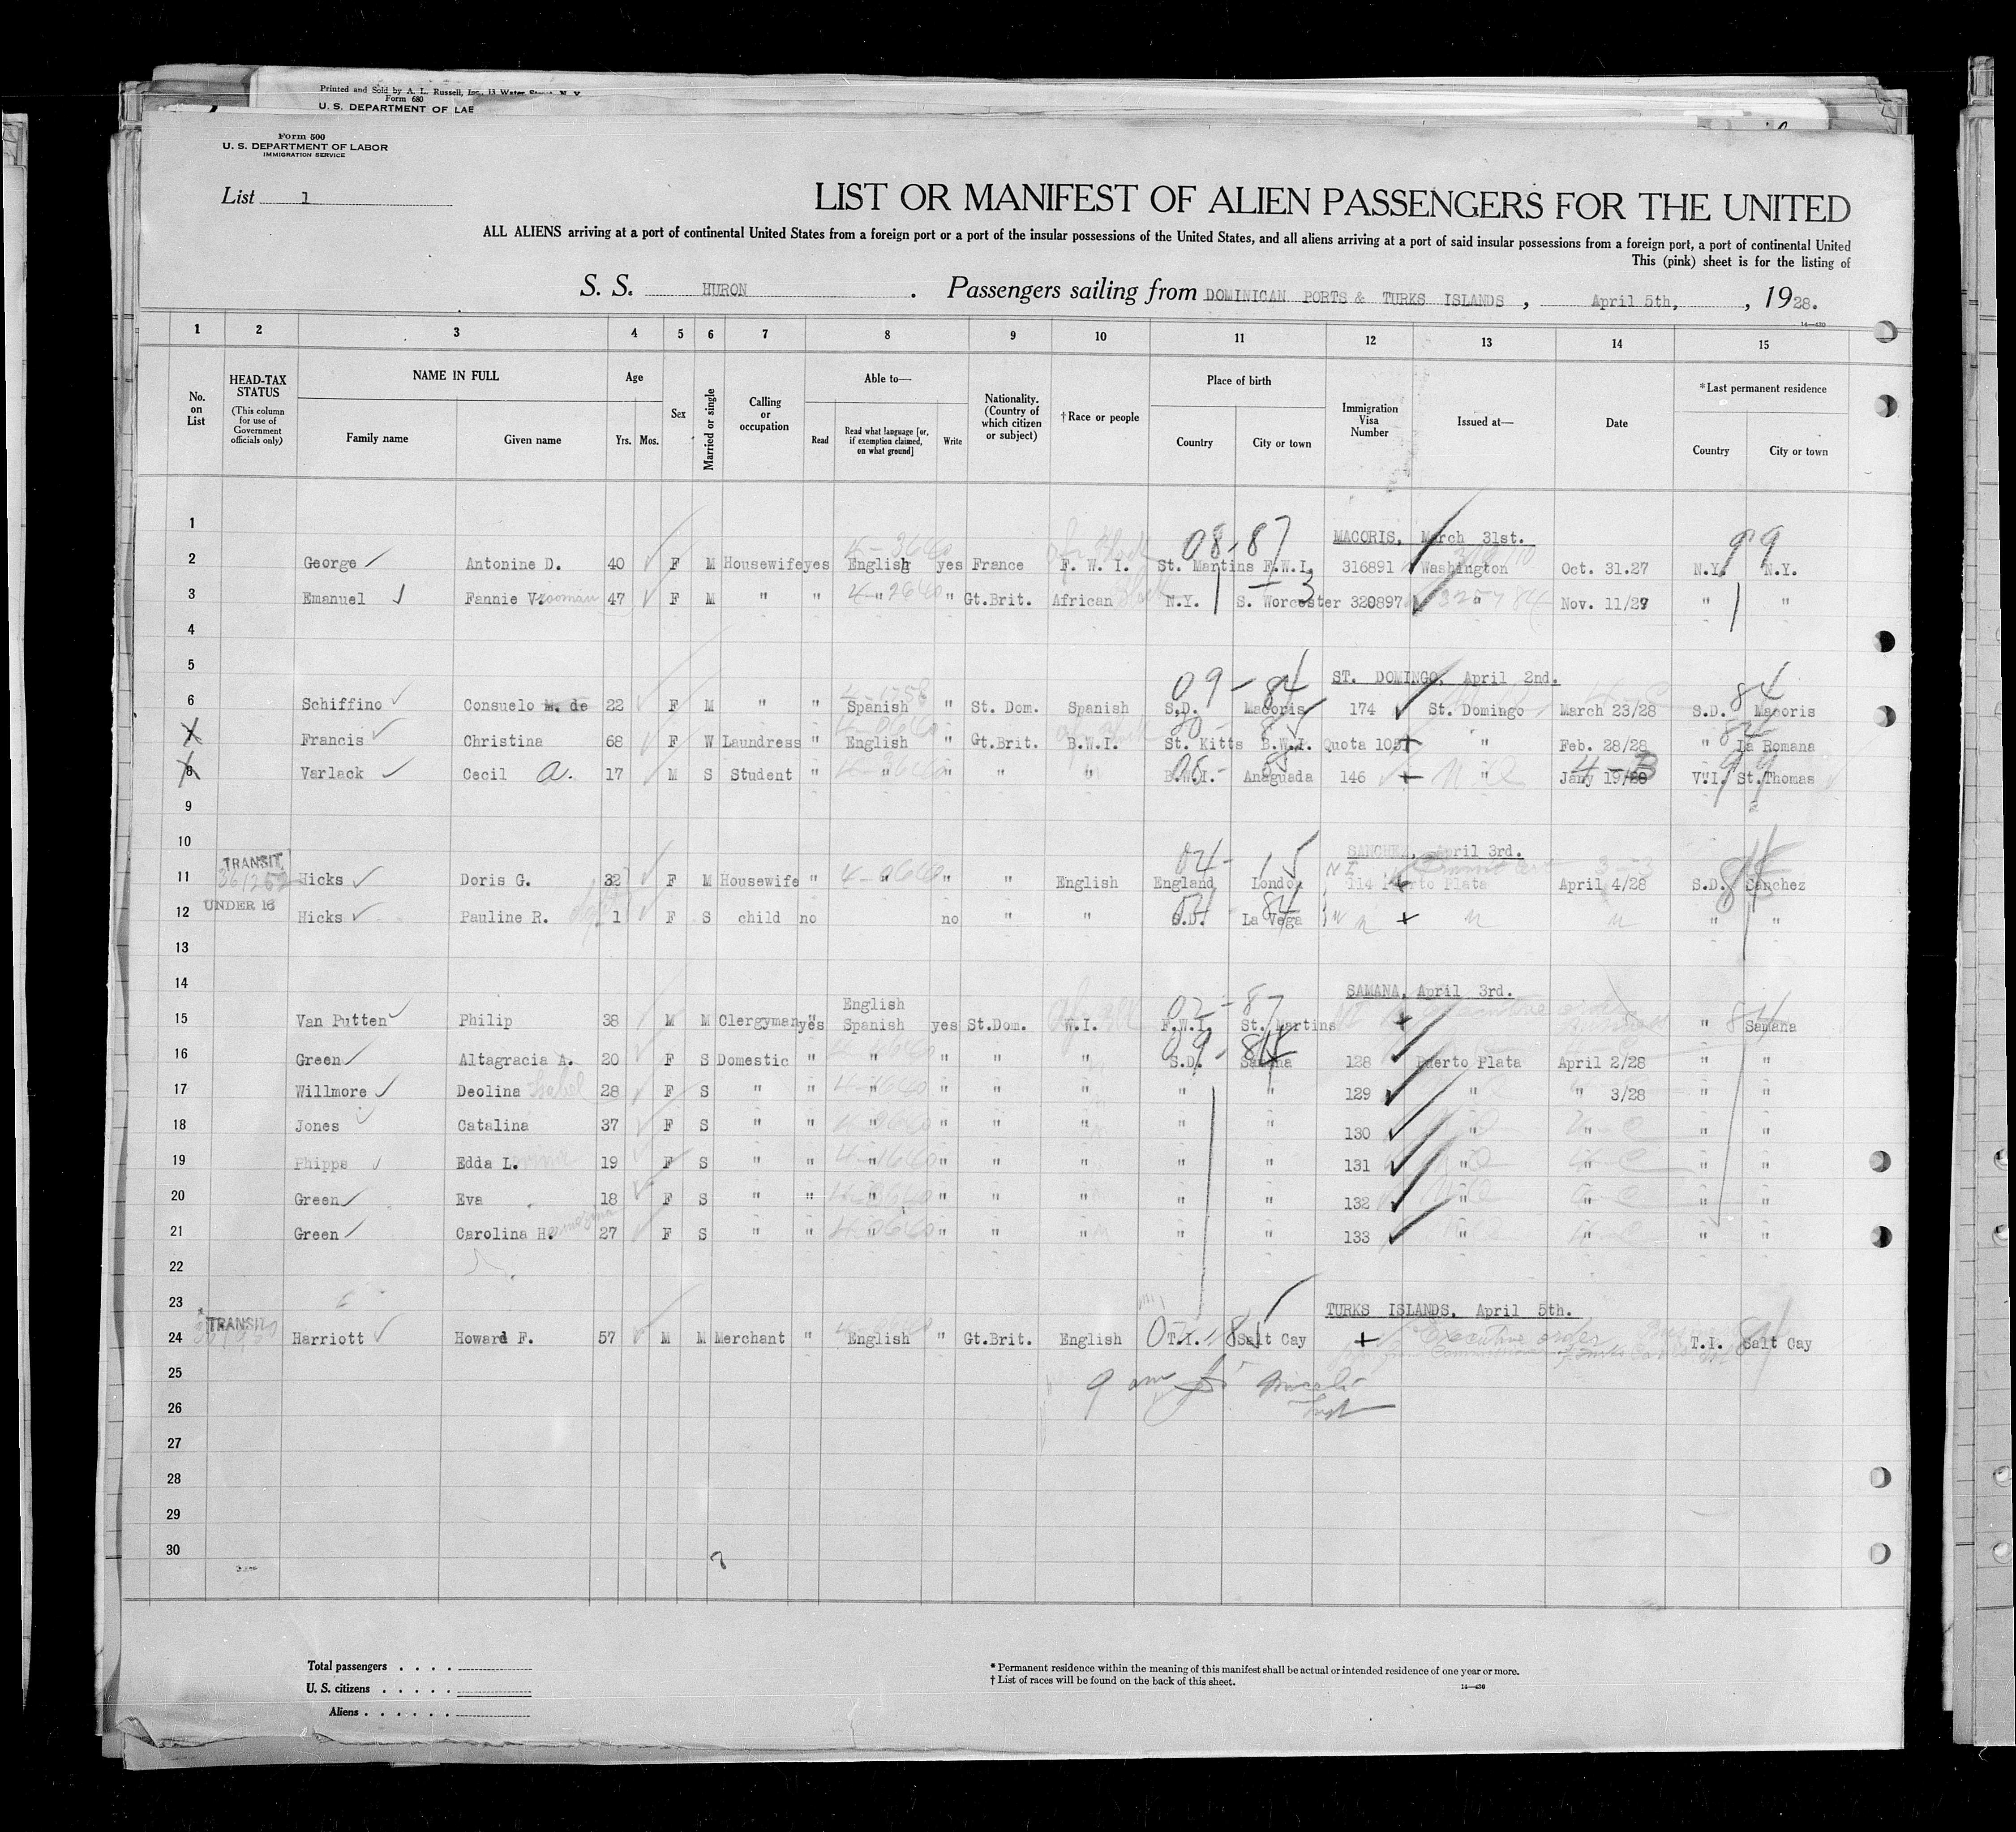 Printed and Sold by A. L. Russell, Inc., 13 Water Street, N. Y.
Form 680
U. S. DEPARTMENT OF LAB
Form 500
U. S. DEPARTMENT OF LABOR
IMMIGRATION SERVICE
List 1
LIST OR MANIFEST OF ALIEN PASSENGERS FOR THE UNITED
ALL ALIENS arriving at a port of continental United States from a foreign port or a port of the insular possessions of the United States, and all aliens arriving at a port of said insular possessions from a foreign port, a port of continental United
This (pink) sheet is for the listing of
S. S. HURON . Passengers sailing from DOMINICAN PORTS & TURKS ISLANDS , April 5th, , 1928.
1 2 3 4 5 6 7 8 9 10 11 12 13 14 15
No. on List
HEAD-TAX STATUS (This column for use of Government officials only)
NAME IN FULL Family name Given name
Age Yrs. Mos.
Sex
Married or single
Calling or occupation
Able to— Read Read what language [or, if exemption claimed, on what ground] Write
Nationality. (Country of which citizen or subject)
†Race or people
Place of birth Country City or town
Immigration Visa Number
Issued at—
Date
*Last permanent residence Country City or town
1 MACORIS, March 31st.
08-87 99
2 George Antonine D. 40 F M Housewife yes English yes France F. W. I. St. Martins F.W.I. 316891 Washington Oct. 31.27 N.Y. N.Y.
3 Emanuel Fannie V. 47 F M " " " " Gt.Brit. African N.Y. S. Worcester 320897 " Nov. 11/27 " "
4
5 ST. DOMINGO, April 2nd.
09-84 84
6 Schiffino Consuelo M. de 22 F M " " Spanish " St. Dom. Spanish S.D. Macoris 174 St. Domingo March 23/28 S.D. Macoris
Francis Christina 68 F W Laundress " English " Gt.Brit. B.W.I. St. Kitts B.W.I. Quota 105 " Feb. 28/28 " La Romana
8 Varlack Cecil A. 17 M S Student " " " " " B.W.I. Anaguada 146 " Jany 19/28 V.I. St.Thomas
9
10 SANCHEZ, April 3rd.
TRANSIT
11 Hicks Doris G. 32 F M Housewife " " " " English England London 114 Puerto Plata April 4/28 S.D. Sanchez
UNDER 16
12 Hicks Pauline R. 1 F S child no no " " S.D. La Vega " "
13
14 SAMANA, April 3rd.
English
15 Van Putten Philip 38 M M Clergyman yes Spanish yes St.Dom. W.I. F.W.I. St. Martins " Samana
16 Green Altagracia A. 20 F S Domestic " " " " " S.D. Samana 128 Puerto Plata April 2/28 " "
17 Willmore Deolina Isabel 28 F S " " " " " " " " 129 " " 3/28 " "
18 Jones Catalina 37 F S " " " " " " " " 130 " " " "
19 Phipps Edda L. 19 F S " " " " " " " " 131 " " " "
20 Green Eva 18 F S " " " " " " " " 132 " " " "
21 Green Carolina H. 27 F S " " " " " " " " 133 " " " "
22
23 TURKS ISLANDS, April 5th.
TRANSIT
24 Harriott Howard F. 57 M M Merchant " English " Gt.Brit. English T.I. Salt Cay Executive order T.I. Salt Cay
25
26
27
28
29
30
Total passengers . . . .
U. S. citizens . . . . .
Aliens . . . . . .
* Permanent residence within the meaning of this manifest shall be actual or intended residence of one year or more.
† List of races will be found on the back of this sheet.